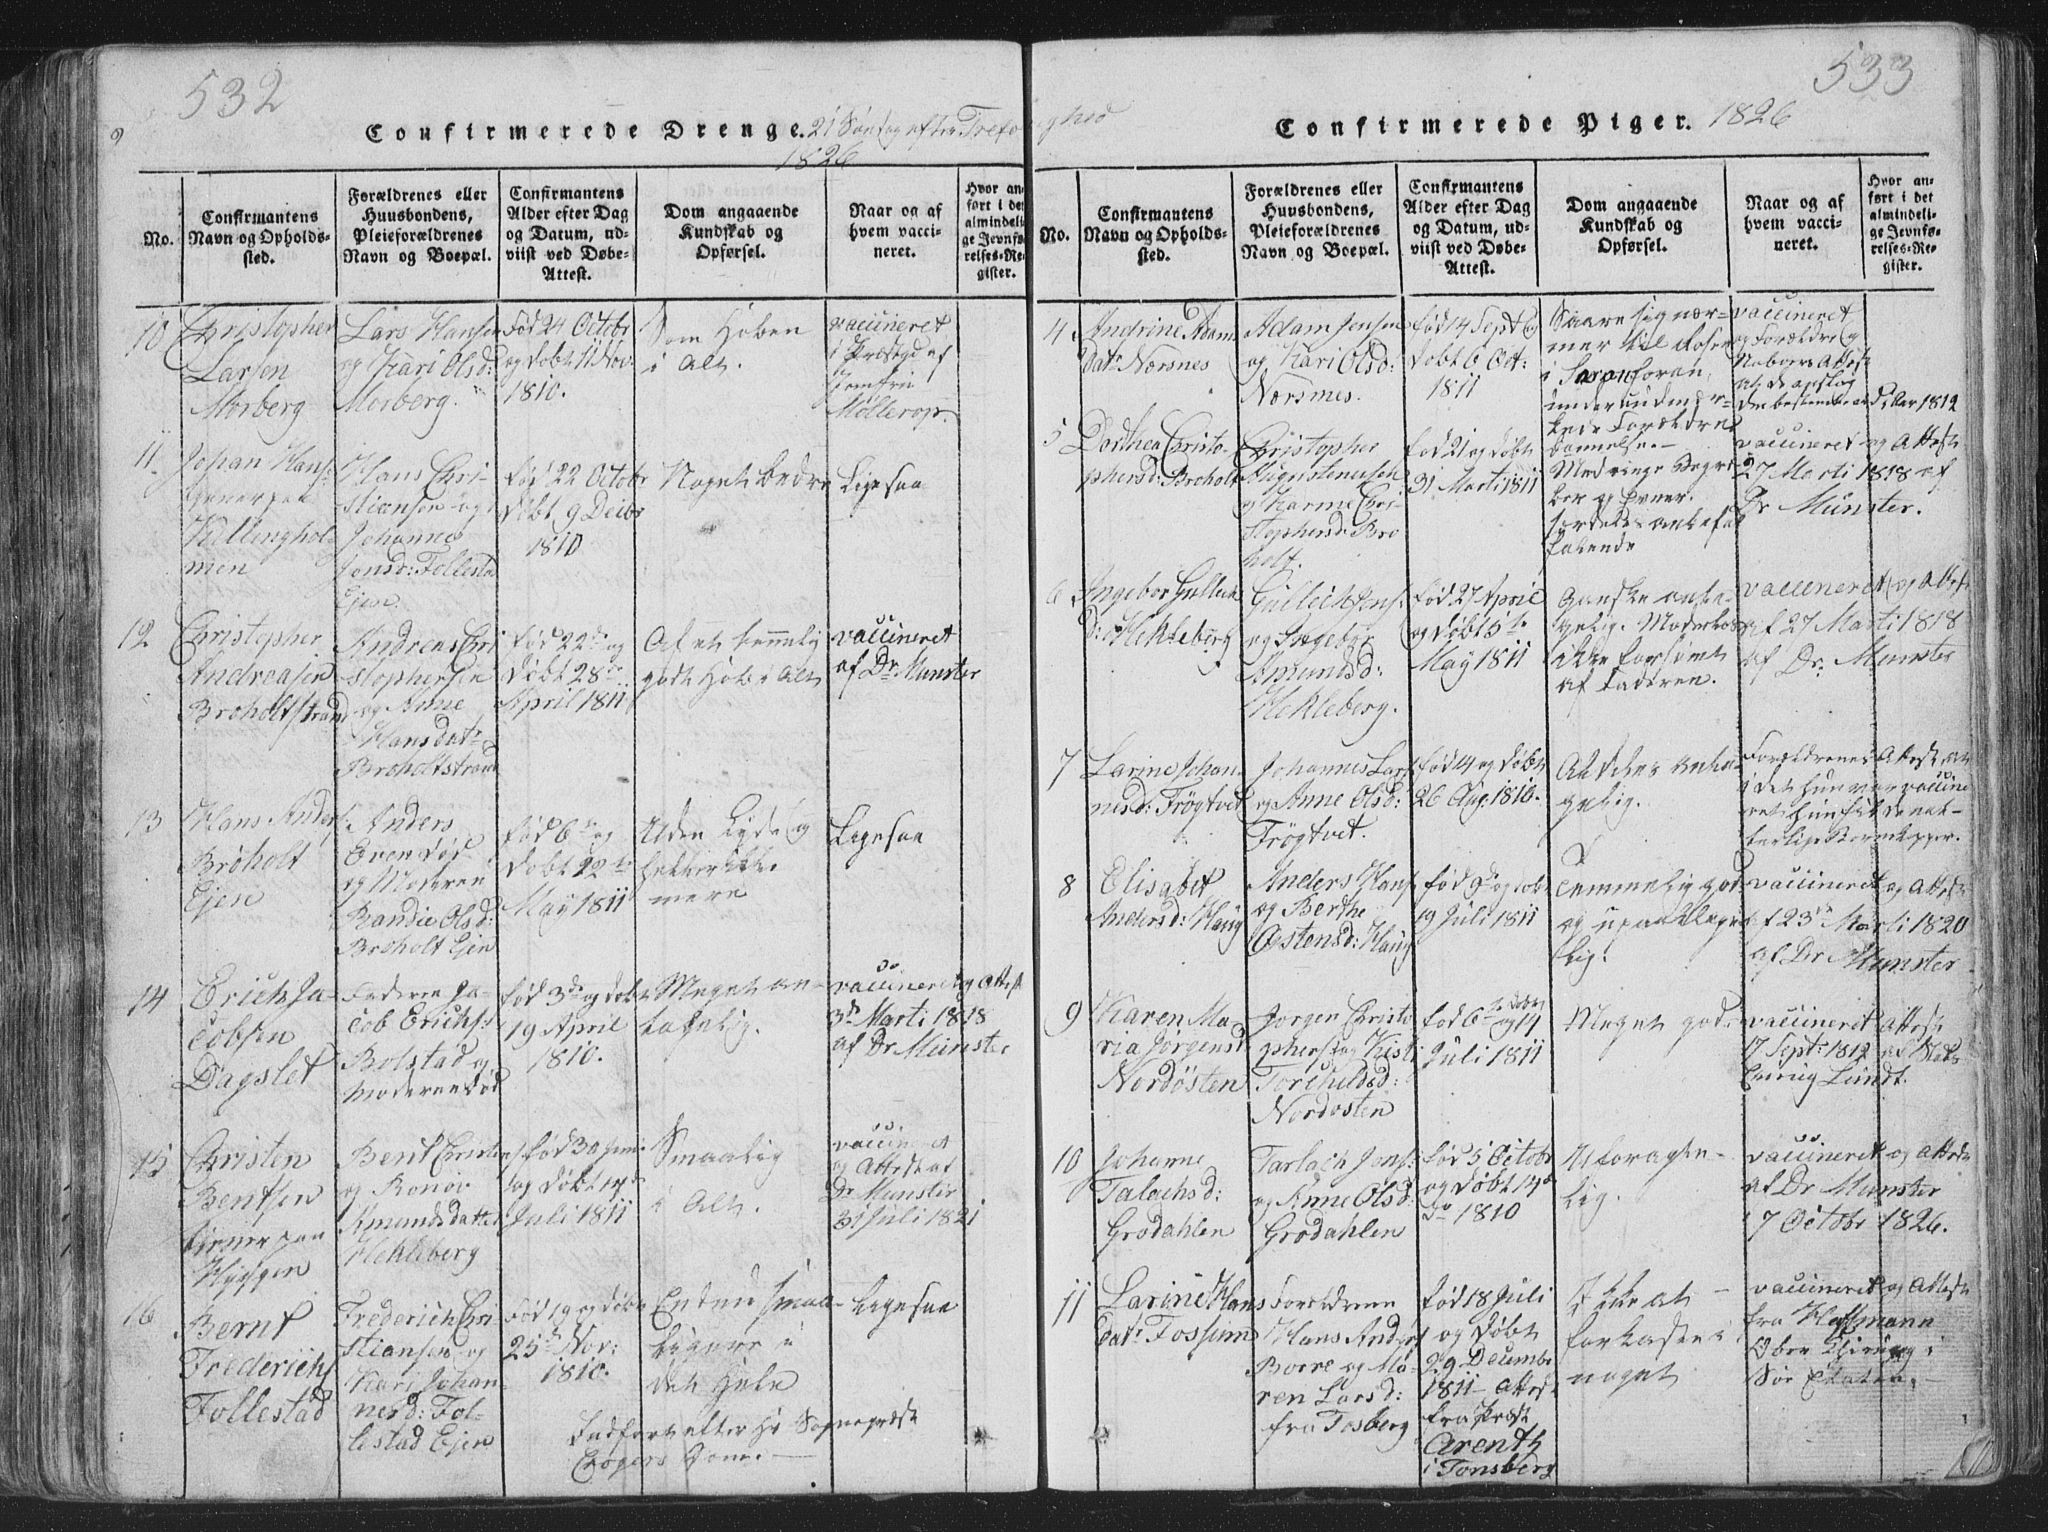 532
Confirmerede Drenge. 21 Søndag efter Trefoldighed
1826
No.
Confirmantens
Navn og Opholds-
sted.
Forældrenes eller
Huusbondens,
Pleieforældrenes
Navn og Boepæl.
Confirmantens
Alder efter Dag
og Datum, ud-
viist ved Døbe-
Attest.
Dom angaaende
Kundskab og
Opførsel.
Naar og af
hvem vacci-
neret.
Hvor an-
ført i det
almindeli-
ge Jevnfø-
relses-Re-
gister.
10
Christopher
Larsen
Morberg
Lars Hansen
og Kari Olsd:
Morberg.
Fød 24 Octobr
og døbt 11 Nov.
1810.
Som Høben
i Alt.
vaccineret
i Præstegd af
Jomfru
Møllerop.
11
Johan Hans:
tjener paa
Killinghol-
men
Hans Chri-
stiansen og
Johanne
Jonsd: Follestad
Ejen.
Fød 22 Octobr
døbt 9 Decbr
1810
Noget bedre
Ligesaa
12
Christopher
Andreasen
Broholtstrand
Andreas Chri
stophersen
og Anne
Hansdatr
Broholtstrand
Fød 22de og
døbt 28de
April 1811
Af et temmelig
godt Hob i Alt
vaccineret
af Dr Munster
13
Hans Anders:
Broholt
Ejen
Anders
Even død
og Moderen
Randie Olsd:
Broholt Ejen
fød 6te og
døbt 12te
May 1811
Uden Lyde og
heller ikke
mere
Ligesaa
14
Erich Ja-
cobsen
Dagslet
Faderen Ja-
cob Erichs:
Bolstad og
Moderen død
fød 3de og døbt
19 April
1810.
Meget an-
tagelig.
vaccineret og Attest
3de Marti 1818
af Dr Munster
15
Christen
Bentsen
tjener paa
Hyggen
Bent Christens
og Ronov
Amundsdatter
Hekleberg
fød 30 Juni
og døbt 14de
Juli 1811
Smaalig
i Alt.
vaccineret
og Attest af
Dr Munster
31 Juli 1821
16
Bernt
Frederichs
Follestad
Frederich Chri
stiansen og
Kari Johan-
nesd: Fol-
lestad Ejen
Fød 19 og døbt
25de Nov:
1810.
Endnu smaa-
ligere i
det Hele
Ligesaa
Indført efter Hr Sognepræst
Crøgers Dom.
533
Confirmerede Piger. 1826
No.
Confirmantens
Navn og Opholds-
sted.
Forældrenes eller
Huusbondens,
Pleieforældrenes
Navn og Boepæl.
Confirmantens
Alder efter Dag
og Datum, ud-
viist ved Døbe-
Attest.
Dom angaaende
Kundskab og
Opførsel.
Naar og af
hvem vacci-
neret.
Hvor an-
ført i det
almindeli-
ge Jevnfø-
relses-Re-
gister.
4
Andrine Adams
Datr Nærsnes
Adam Jensen
og Kari Olsd:
Nærsnes.
Fød 14 Sept og
døbt 6 Oct:
1811
vaccineret
og Forældre og
Naboers Attest
5
Dorthea Christo-
phersd: Broholt
Christopher
Augustinussen
og Karine Chri-
stophersd: Bro
holt.
fød 21 og døbt
31 Marti 1811
vaccineret og Attest
27 Marti 1818 af
Dr Munster.
6
Ingebor Gullich
d: Hekleberg
Gullich Jens:
og Ingebor
Amundsd:
Hekleberg.
fød 27 April
og døbt 5te
May 1811
Ganske anta-
gelig. Moderløs
ikke forsømt
af Faderen.
vaccineret og Attest
af 27 Marti 1818
af Dr. Munster
7
Larine Johan-
nesd: Frøgtvet
Johannes Lars:
og Anne Olsd:
Frøgtvet.
fød 14 og døbt
26 Aug. 1810.
Aldeles anta
gelig.
Forældrenes Attest at
i det hun var vaccine
ret hun fik de nat-
turlige Børnekopper.
8
Elisabet
Andersd: Haug
Anders Hans:
og Berthe
Østensd: Haug
fød 9de og døbt
19 Juli 1811
Temmelig god
og upaaklage-
lig.
vaccineret og Attest
af 23de Marti 1820
af Dr Munster
9
Karen Ma-
ria Jørgensd
Nordøsten
Jørgen Christo
phers: og Kisti
Torchildsd:
Nordøsten
fød 6te og døbt 14
Juli 1811
Meget god.
vaccineret Attest
17 Sept: 1812 af
Chirurg Lundt.
10
Johanne
Talachsd:
Grodahlen
Tarlach Jons:
og Anne Olsd:
Grodahlen
Fød 5 Octobr
og døbt 14de
do 1810
Uforagte-
lig.
vaccineret og Attest
af Dr Munster
7 Octobr 1826.
11
Larine Hans
Datr Fossum
Forældrene
Hans Anders
Borre og Ma-
ren Larsd:
fra Tosberg
Fød 18 Juli
og døbt
29 Decembr
1811 Attest
fra Præst
Arentz
i Tønsberg
Ikke at
forkaste i
noget
vaccineret og Attest
fra Hoffmann
Ober Chirurg i